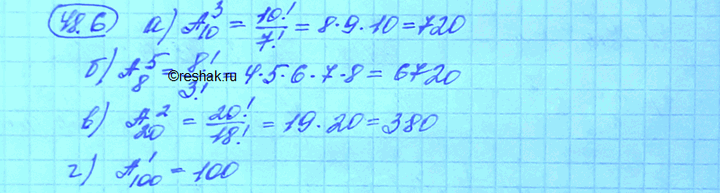 48.6) а) A₁₀³ = 10!/7! = 8·9·10 = 720
б) A₈⁵ = 8!/3! = 4·5·6·7·8 = 6720
©reshak.ru
в) A₂₀² = 20!/18! = 19·20 = 380
г) A₁₀₀¹ = 100